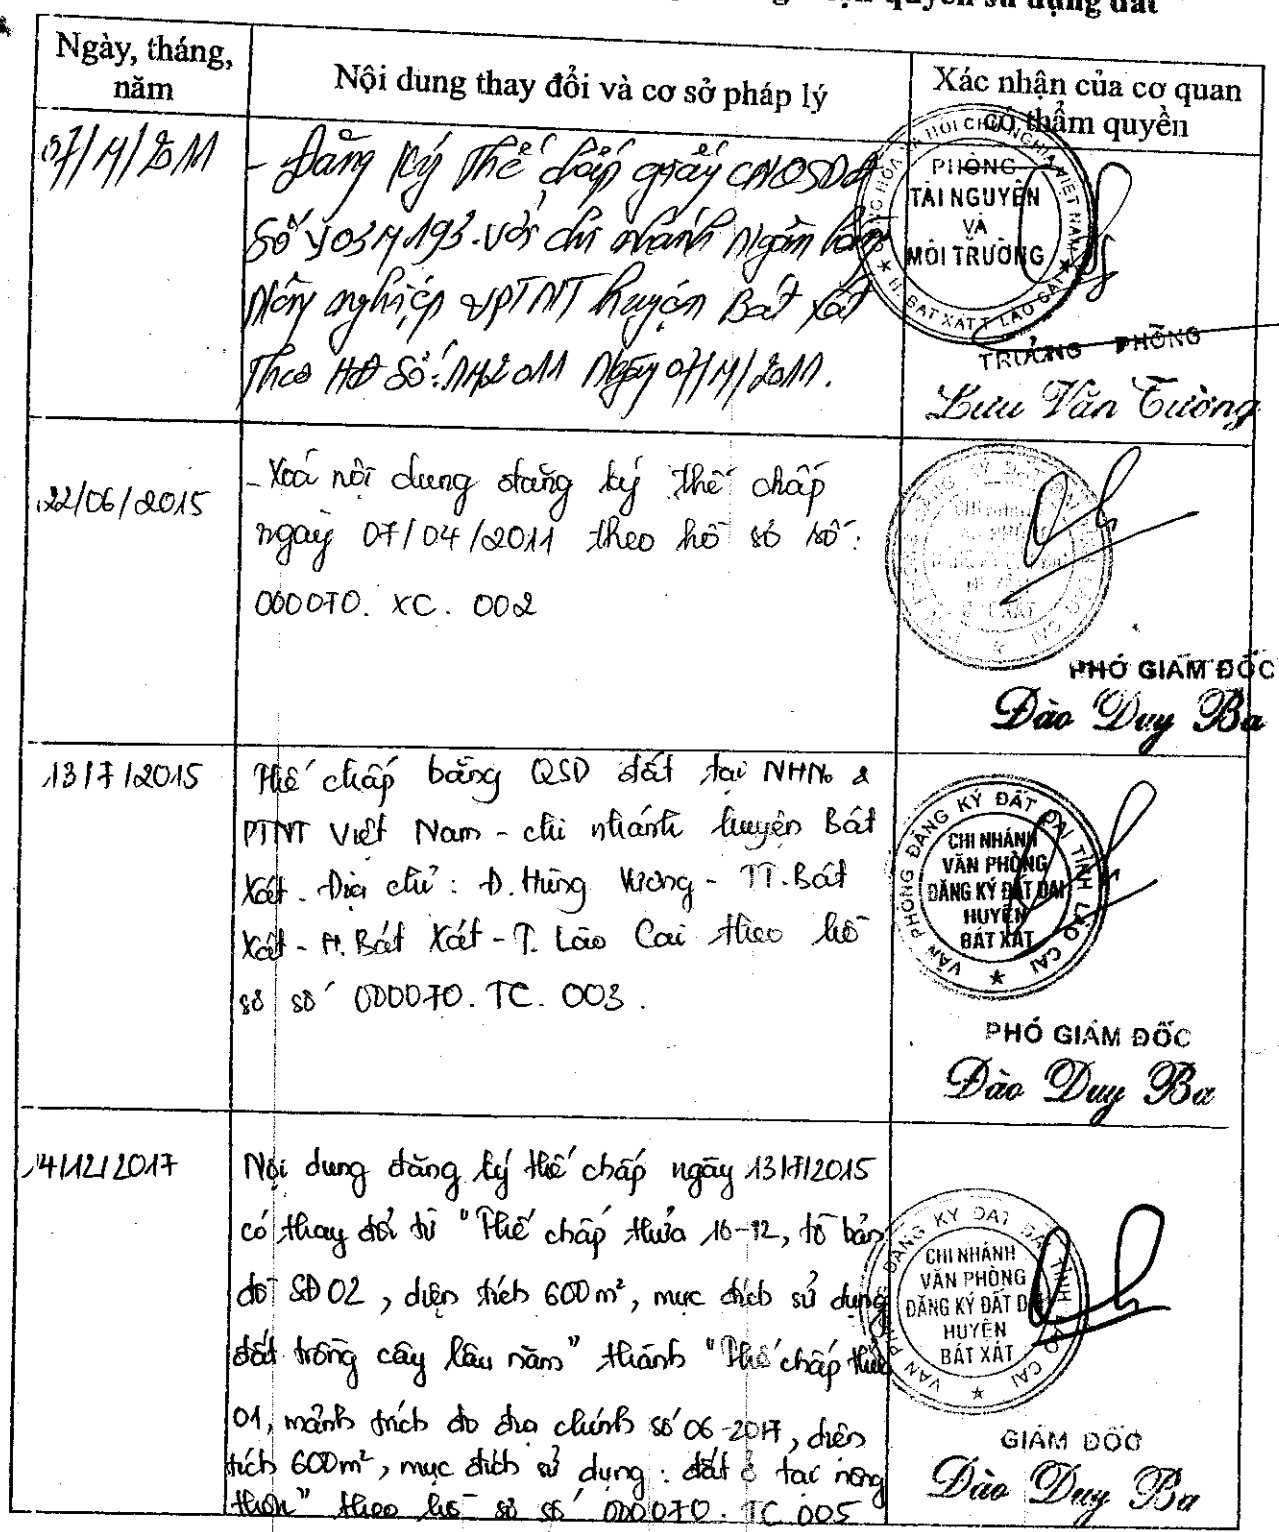 quyền sử dụng đất
Ngày, tháng, năm
Nội dung thay đổi và cơ sở pháp lý
Xác nhận của cơ quan có thẩm quyền
07/4/2011
- Đăng ký thế chấp giấy CNQSDĐ
Số Y 034193. với chi nhánh Ngân hàng
Nông nghiệp &PTNT huyện Bát Xát
Theo HĐ Số: NH2011 Ngày 07/4/2011.
CỘNG HÒA XÃ HỘI CHỦ NGHĨA VIỆT NAM
PHÒNG
TÀI NGUYÊN
VÀ
MÔI TRƯỜNG
H. BÁT XÁT T. LÀO CAI
TRƯỞNG PHÒNG
Lưu Văn Cường
22/06/2015
- Xoá nội dung đăng ký thế chấp
ngày 07/04/2011 theo hồ sơ số:
000070. XC. 002
PHÓ GIÁM ĐỐC
Đào Duy Ba
13/7/2015
Thế chấp bằng QSD đất tại NHNo &
PTNT Việt Nam - chi nhánh huyện Bát
Xát. Địa chỉ: Đ. Hùng Vương - TT. Bát
Xát - H. Bát Xát - T. Lào Cai theo hồ
sơ số 000070. TC. 003.
VĂN PHÒNG ĐĂNG KÝ ĐẤT ĐAI TỈNH LÀO CAI
CHI NHÁNH
VĂN PHÒNG
ĐĂNG KÝ ĐẤT ĐAI
HUYỆN
BÁT XÁT
PHÓ GIÁM ĐỐC
Đào Duy Ba
14/12/2017
Nội dung đăng ký thế chấp ngày 13/7/2015
có thay đổi từ "Thế chấp thửa 16-12, tờ bản
đồ SĐ 02, diện tích 600m², mục đích sử dụng
đất trồng cây lâu năm" thành "Thế chấp thửa
01, mảnh trích đo địa chính số 06-2017, diện
tích 600m², mục đích sử dụng: đất ở tại nông
thôn" theo hồ sơ số 000070. TC 005
VĂN PHÒNG ĐĂNG KÝ ĐẤT ĐAI TỈNH LÀO CAI
CHI NHÁNH
VĂN PHÒNG
ĐĂNG KÝ ĐẤT ĐAI
HUYỆN
BÁT XÁT
GIÁM ĐỐC
Đào Duy Ba